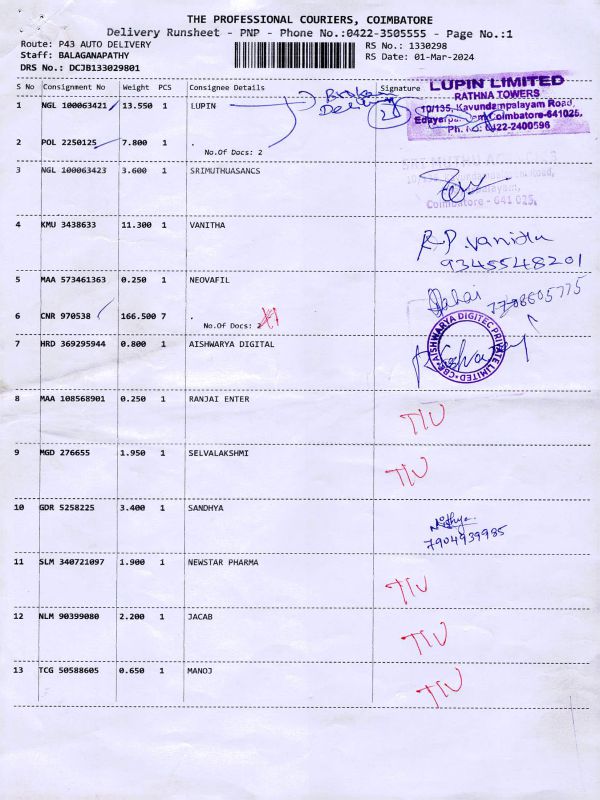 THE PROFESSIONAL COURIERS, COIMBATORE
Delivery Runsheet - PNP - Phone No.:0422-3505555 - Page No.:1
Route: P43 AUTO DELIVERY
RS No.: 1330298
Staff: BALAGANAPATHY
RS Date: 01-Mar-2024
DRS No.: DCJB133029801
S No Consignment No Weight PCS Consignee Details Signature
LUPIN LIMITED
RATHNA TOWERS
10/135, Kavundampalayam Road,
Coimbatore-641025.
Ph. No: 0422-2400596
1 NGL 100063421 13.550 1 LUPIN
2 POL 2250125 7.800 1 .
No.Of Docs: 2
3 NGL 100063423 3.600 1 SRIMUTHUASANCS
Coimbatore - 641 025.
4 KMU 3438633 11.300 1 VANITHA
R.P. Vanitha
9345548201
5 MAA 573461363 0.250 1 NEOVAFIL
7708605775
6 CNR 970538 166.500 7 .
No.Of Docs: 2
7 HRD 369295944 0.800 1 AISHWARYA DIGITAL
AISHWARYA DIGITEC PRIVATE LIMITED
CBE
8 MAA 108568901 0.250 1 RANJAI ENTER
TIU
9 MGD 276655 1.950 1 SELVALAKSHMI
TIU
10 GDR 5258225 3.400 1 SANDHYA
7904939985
11 SLM 340721097 1.900 1 NEWSTAR PHARMA
TIU
12 NLM 90399080 2.200 1 JACAB
TIU
13 TCG 50588605 0.650 1 MANOJ
TIU